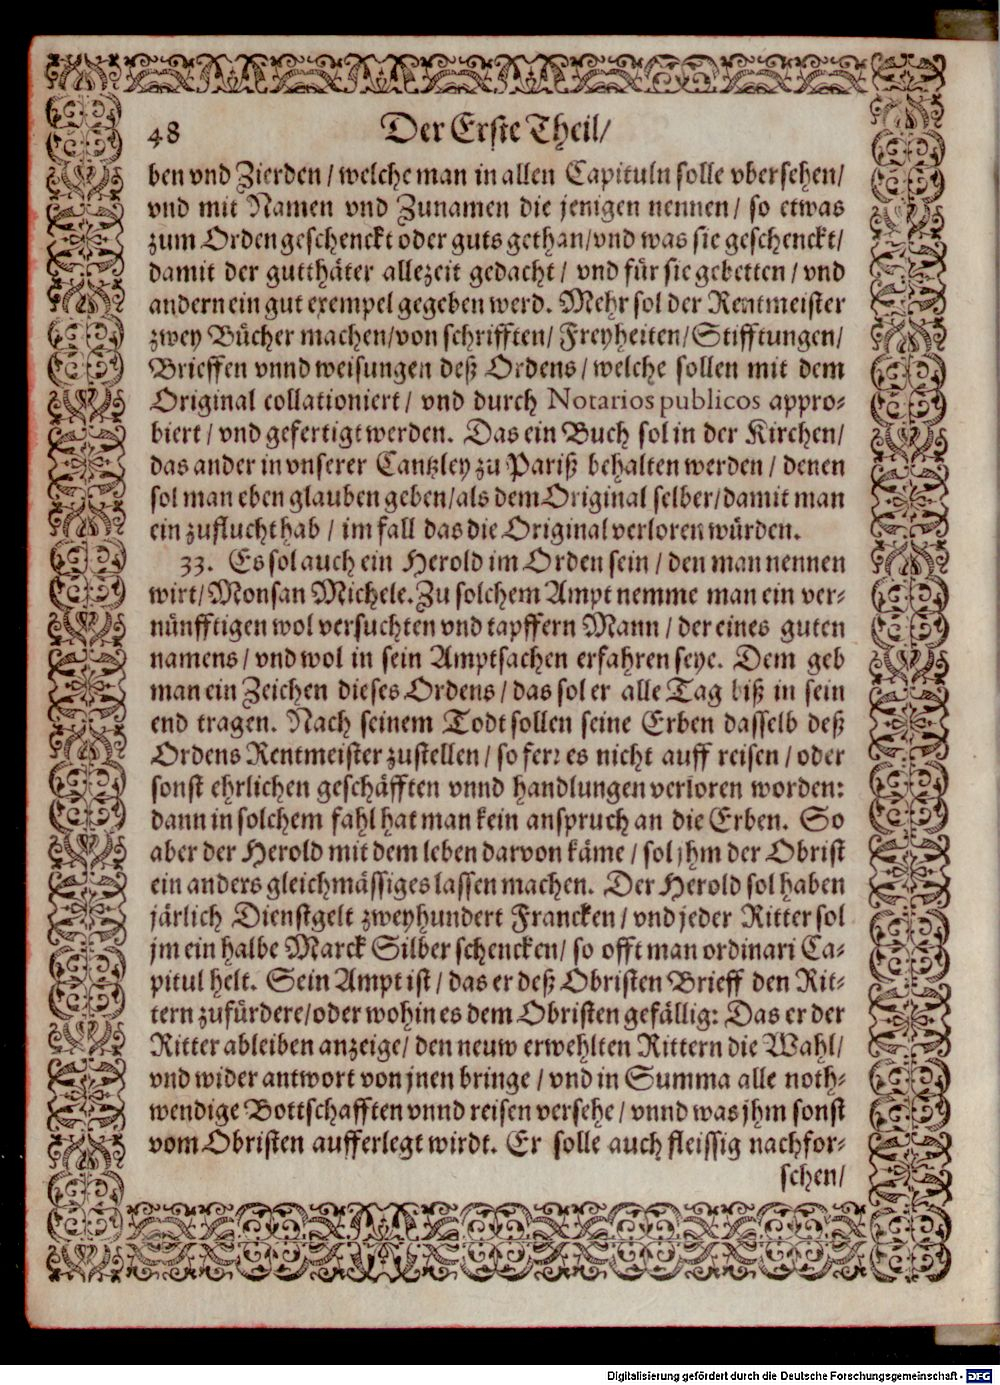 48 Der Erste Theil/
ben vnd Zierden / welche man in allen Capituln solle vbersehen/
vnd mit Namen vnd Zunamen die jenigen nennen / so etwas
zum Orden geschenckt oder guts gethan/vnd was sie geschenckt/
damit der gutthäter allezeit gedacht / vnd für sie gebetten / vnd
andern ein gut exempel gegeben werd. Mehr sol der Rentmeister
zwey Bücher machen/von schrifften/ Freyheiten/Stifftungen/
Brieffen vnnd weisungen deß Ordens / welche sollen mit dem
Original collationiert / vnd durch Notarios publicos appro-
biert / vnd gefertigt werden. Das ein Buch sol in der Kirchen/
das ander in vnserer Cantzley zu Pariß behalten werden / denen
sol man eben glauben geben/als dem Original selber/damit man
ein zuflucht hab / im fall das die Original verloren würden.
33. Es sol auch ein Herold im Orden sein / den man nennen
wirt/ Monsan Michele. Zu solchem Ampt nemme man ein ver-
nünfftigen wol versuchten vnd tapffern Mann / der eines guten
namens / vnd wol in sein Amptsachen erfahren seye. Dem geb
man ein Zeichen dieses Ordens / das sol er alle Tag biß in sein
end tragen. Nach seinem Todt sollen seine Erben dasselb deß
Ordens Rentmeister zustellen / so ferr es nicht auff reisen / oder
sonst ehrlichen geschäfften vnnd handlungen verloren worden:
dann in solchem fahl hat man kein anspruch an die Erben. So
aber der Herold mit dem leben darvon käme / sol jhm der Obrist
ein anders gleichmässiges lassen machen. Der Herold sol haben
järlich Dienstgelt zweyhundert Francken / vnd jeder Ritter sol
jm ein halbe Marck Silber schencken / so offt man ordinari Ca-
pitul helt. Sein Ampt ist / das er deß Obristen Brieff den Rit-
tern zufürdere/oder wohin es dem Obristen gefällig: Das er der
Ritter ableiben anzeige/ den neuw erwehlten Rittern die Wahl/
vnd wider antwort von jnen bringe / vnd in Summa alle noth-
wendige Bottschafften vnnd reisen versehe / vnnd was jhm sonst
vom Obristen aufferlegt wirdt. Er solle auch fleissig nachfor-
schen/
Digitalisierung gefördert durch die Deutsche Forschungsgemeinschaft - DFG